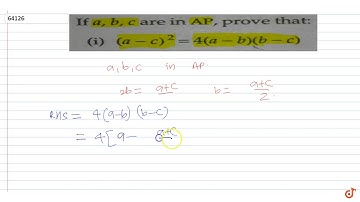 64126
If a, b, c are in AP, prove that:
(i) (a – c)² = 4(a – b)(b – c)
a, b, c in AP.
2b = a+c b = a+c/2
RHS = 4(a-b) (b-c)
= 4[a - a+c